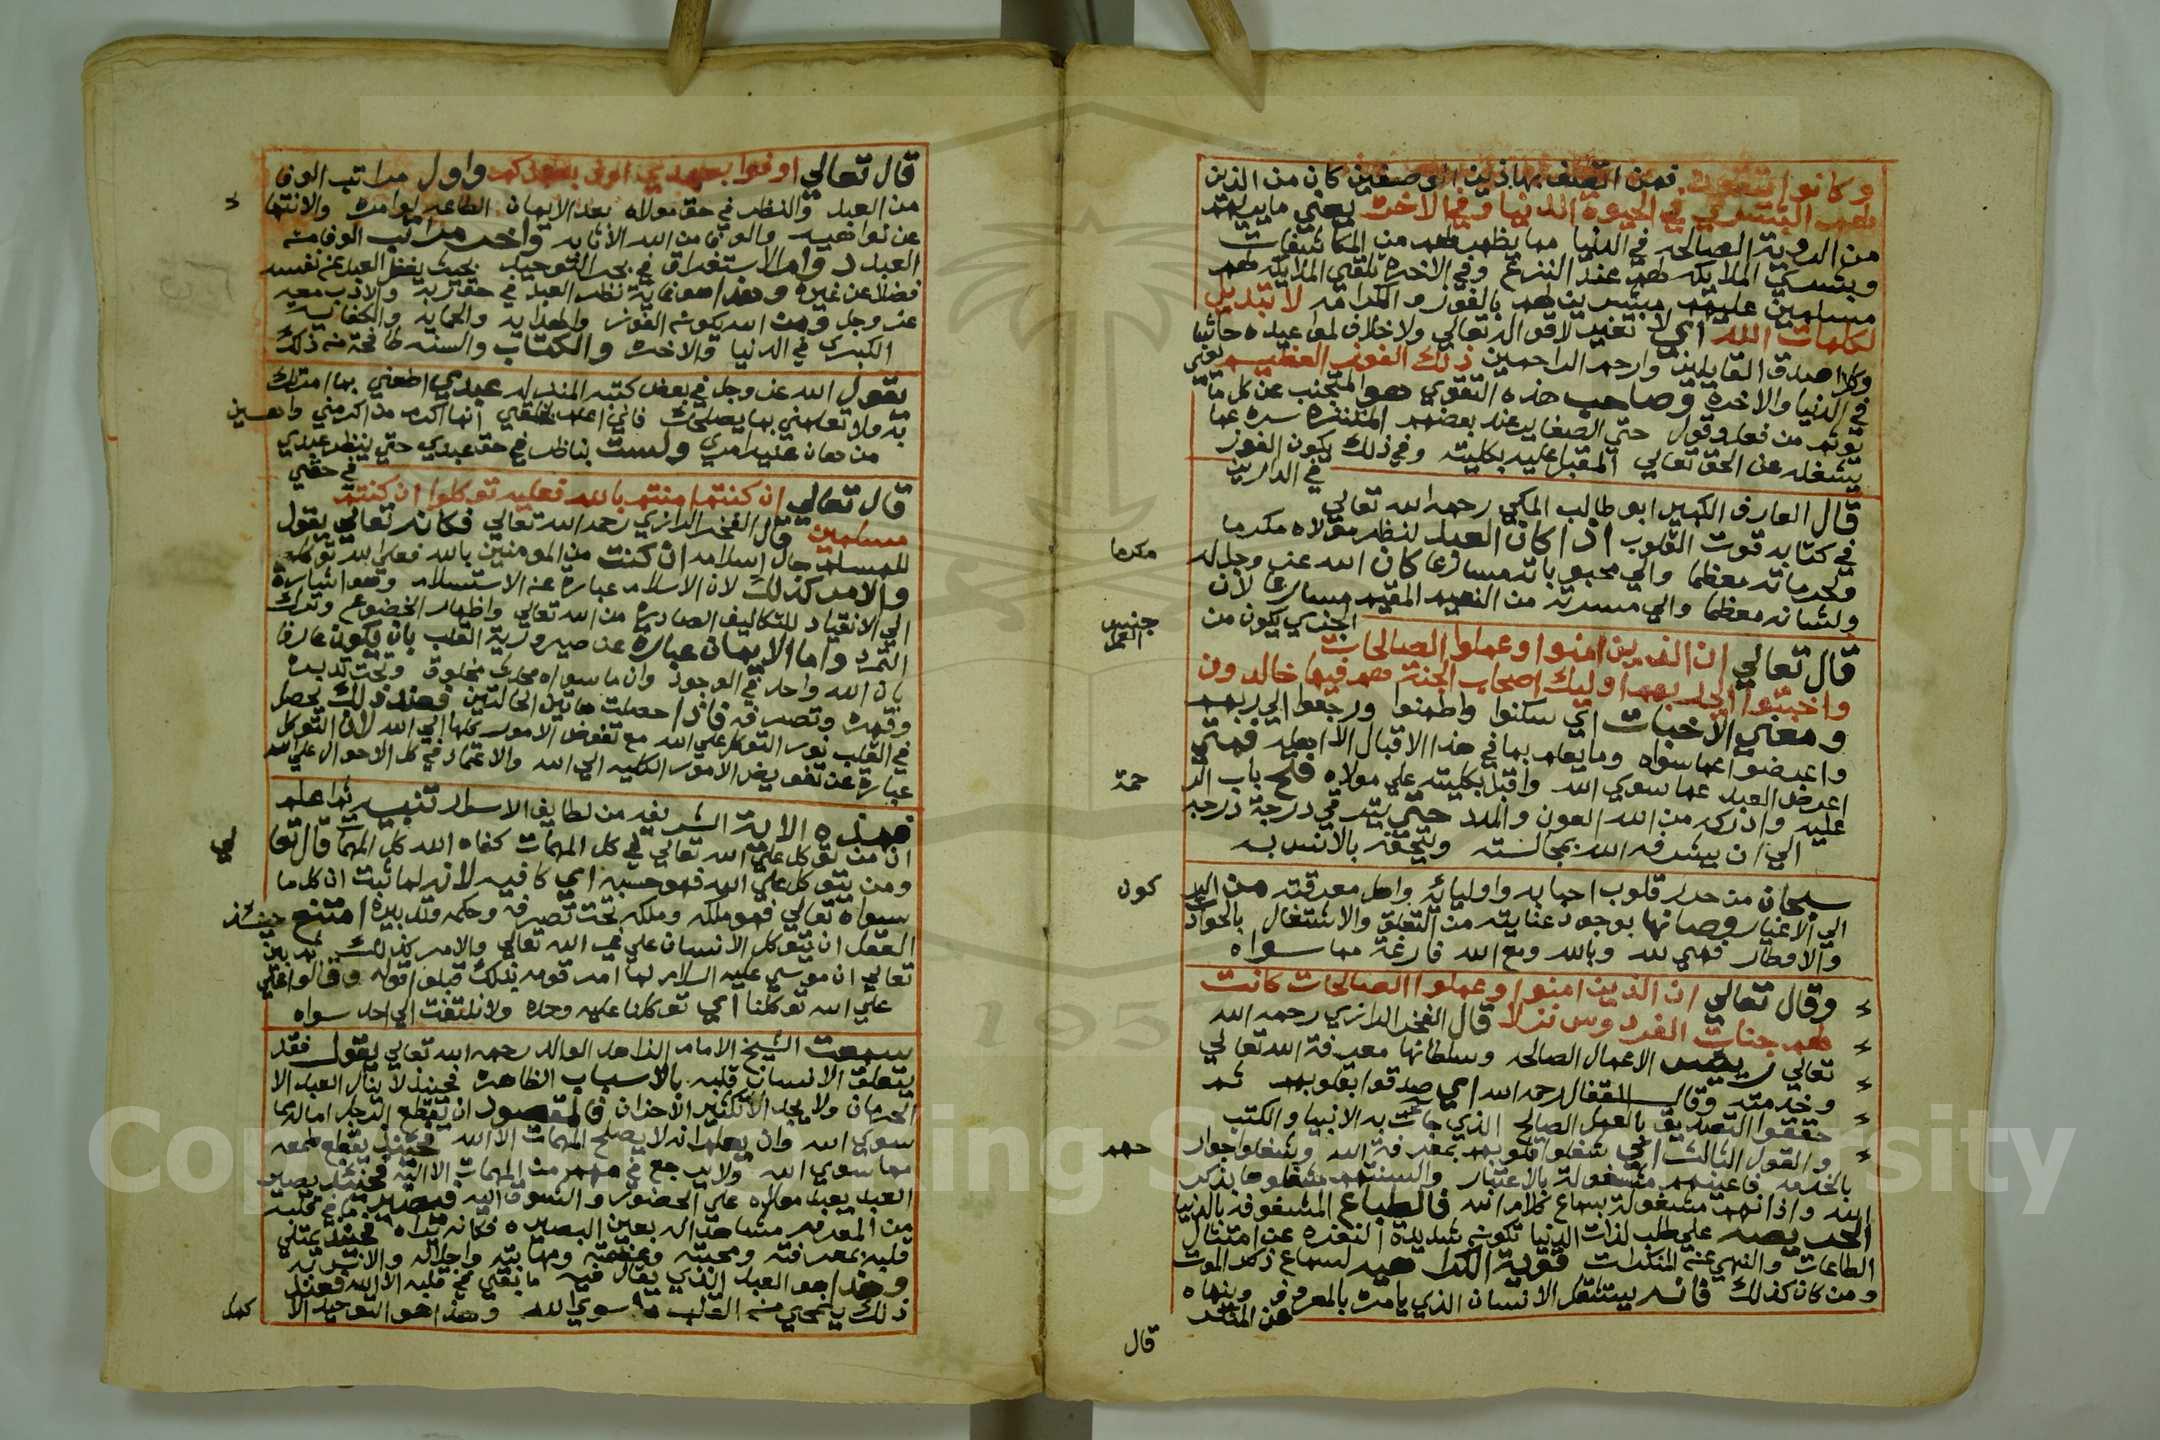 وكانوا يتقون فمن اتصف بهاذين الوصفين كان من الذين
لهم البشري في الحيوة الدنيا وفي الاخرة يعني ما يريهم
من الروية الصالحه في الدنيا مما يظهر لهم من المكاشفات
وبشري الملايكه لهم عند النزع وفي الاخرة تلقي الملايكه لهم
مسلمين عليهم مبشرين لهم بالفوز والكرامه لا تبديل
لكلمات الله اي لا تغيير لاقوال تعالي ولا خلاف لمواعيده حاشا
وكلا اصدق القايلين وارحم الراحمين ذلك الفوز العظيم يعني
في الدنيا والاخرة وصاحب هذه التقوي هو المتجنب عن كل ما
يوثم من فعل وقول حتي الصغاير عند بعضهم المتنزه سره عما
يشغله عن الحق تعالي المقبل عليه بكليته وفي ذلك يكون الفوز
في الدارين
قال العارف الكبير ابو طالب المكي رحمه الله تعالي
في كتابه قوت القلوب اذا كان العبد لنظر مولاه مكرما
ولحرماته معظما والي محبوباته مسارعا كان الله عز وجل له مكرما
ولشانه معظما والي مسرته من النعيم المقيم مسارعا لان
الجزي يكون من جنس العمل
قال تعالي ان الذين امنوا وعملوا الصالحات
واخبتوا الي ربهم اوليك اصحاب الجنة هم فيها خالدون
ومعني الاخبات اي سكنوا واطمنوا ورجعوا الي ربهم
واعرضوا عما سواه وما يعلم بما في هذا الاقبال الا اهله فمتي
اعرض العبد عما سوي الله واقبل بكليته علي مولاه فتح باب الرحمة
عليه وادركه من الله العون والمدد حتي يترقي درجة درجة
الي ان يشرفه الله بمجالسته ويتحقق بالانس به
سبحان من حرر قلوب احبابه واوليائه واهل معرفته من الركون
الي الاغيار وصانها بوجود عنايته من التعلق والاشتغال بالحوادث
والاوطار فهي لله وبالله ومع الله فارغة مما سواه
وقال تعالي ان الذين امنوا وعملوا الصالحات كانت
لهم جنات الفردوس نزلا قال الفخر الرازي رحمه الله
تعالي الاعمال الصالحه وسلطانها معرفة الله تعالي
وخدمته وقال القفال رحمه الله اي صدقوا بقلوبهم ثم
حققوا التصديق بالعمل الصالح الذي جات به الانبيا والكتب
والقول الثالث اي شغلوا قلوبهم بمعرفة الله وشغلوا جوارحهم
بالخدمه فاعينهم مشغولة بالاعتبار والسنتهم مشغلوها بذكر
الله واذانهم مشغولة بسماع كلام الله فالطباع المشغوفه بالدنيا
الحريصه علي طلب لذات الدنيا تكون شديدة النفره عن امتثال
الطاعات والنهي عن المنكرات قوية الكراهيه لسماع ذكر الموت
ومن كان كذلك فانه يستثقل الانسان الذي يامره بالمعروف وينهاه
عن المنكر
قال
قال تعالي اوفوا بعهدي اوف بعهدكم واول مراتب الوفا
من العبد والنظر في حق مولاه بعد الايمان الطاعه لاوامره والانتها
عن نواهيه والوفا من الله الاثابه واخر مراتب الوفا من
العبد الاستغراق في بحر التوحيد بحيث يغفل العبد عن نفسه
فضلا عن غيره وهذا هو غاية نظر العبد في حق ربه والادب معه
عز وجل ومن الله يكون الفوز والهدايه والحمايه والكفايه
الكبري في الدنيا والاخره والكتاب والسنه طافحة من ذلك
يقول الله عز وجل في بعض كتبه المنزله عبدي اطعني بما امرتك
به ولا تعلمني بما يصلحك فاني اعلم بخلقي انما اكرم من اكرمني واهين
من هان عليه امري ولست بناظر في حق عبدي حتي ينظر عبدي
في حقي
قال تعالي ان كنتم امنتم بالله فعليه توكلوا ان كنتم
مسلمين قال الفخر الرازي رحمه الله تعالي فكانه تعالي يقول
للمسلم حال اسلامه ان كنت من المومنين بالله فعلي الله توكل
والامر كذلك لان الاسلام عبارة عن الاستسلام وهو اشارة
الي الانقياد للتكاليف الصادرة من الله تعالي واظهار الخضوع وترك
التمرد واما الايمان عبارة عن صيرورية القلب بان يكون عارفا
بان الله واحد في الوجود وان ما سواه محدث مخلوق وتحت تدبيره
وقهره وتصرفه فاذا حصلت هاتين الحالتين فعند ذلك يحصل
في القلب نور التوكل علي الله مع تفوض الامور كلها الي الله لان التوكل
عبارة عن تفويض الامور الكليه الي الله والاعتماد في كل الاحوال علي الله
فهذه الاية الشريفه من لطايف الاسرار تنبيه ثم اعلم
ان من توكل علي الله تعالي في كل المهمات كفاه الله كل المهمات قال تعالي
ومن يتوكل علي الله فهو حسبه اي كافيه لانه لما ثبت ان كل ما
سواه تعالي فهو ملكه وملكه تحت تصرفه وحكمه وتدبيره امتنع حينئذ
العقل ان يتوكل الانسان علي غير الله تعالي والامر كذلك ثم بين
تعالي ان موسي عليه السلام لما امر قومه بذلك قبلوا قوله وقالوا علي
علي الله توكلنا اي توكلنا عليه وحده ولا نلتفت الي احد سواه
سمعت الشيخ الامام الزاهد الوالد رحمه الله تعالي يقول فقد
يتعلق الانسان قلبه بالاسباب الظاهره فحينئذ لا ينال العبد الا
الحرمان ولا يجد الا تكثير الاحزان فالمقصود ان يقطع الرجل اماله عما
سوي الله وان يعلم انه لا يصلح المهمات الا الله فحينئذ يقطع طمعه
مما سوي الله ولا يرجع في مهم من المهمات الا اليه فحينئذ يصير
العبد يعبد مولاه علي الحضور والشوق اليه فيصير في قلبه
من المعرفه مشاهدا له بعين البصيره فكانه يراه فحينئذ يمتلي
قلبه بمعرفته ومحبته وعظمته ومهابته واجلاله والانس به
وهذا هو العبد الذي يقال فيه ما بقي في قلبه الا الله فعند
ذلك ينمحي من القلب ما سوي الله وهذا هو التوحيد الا
كمل